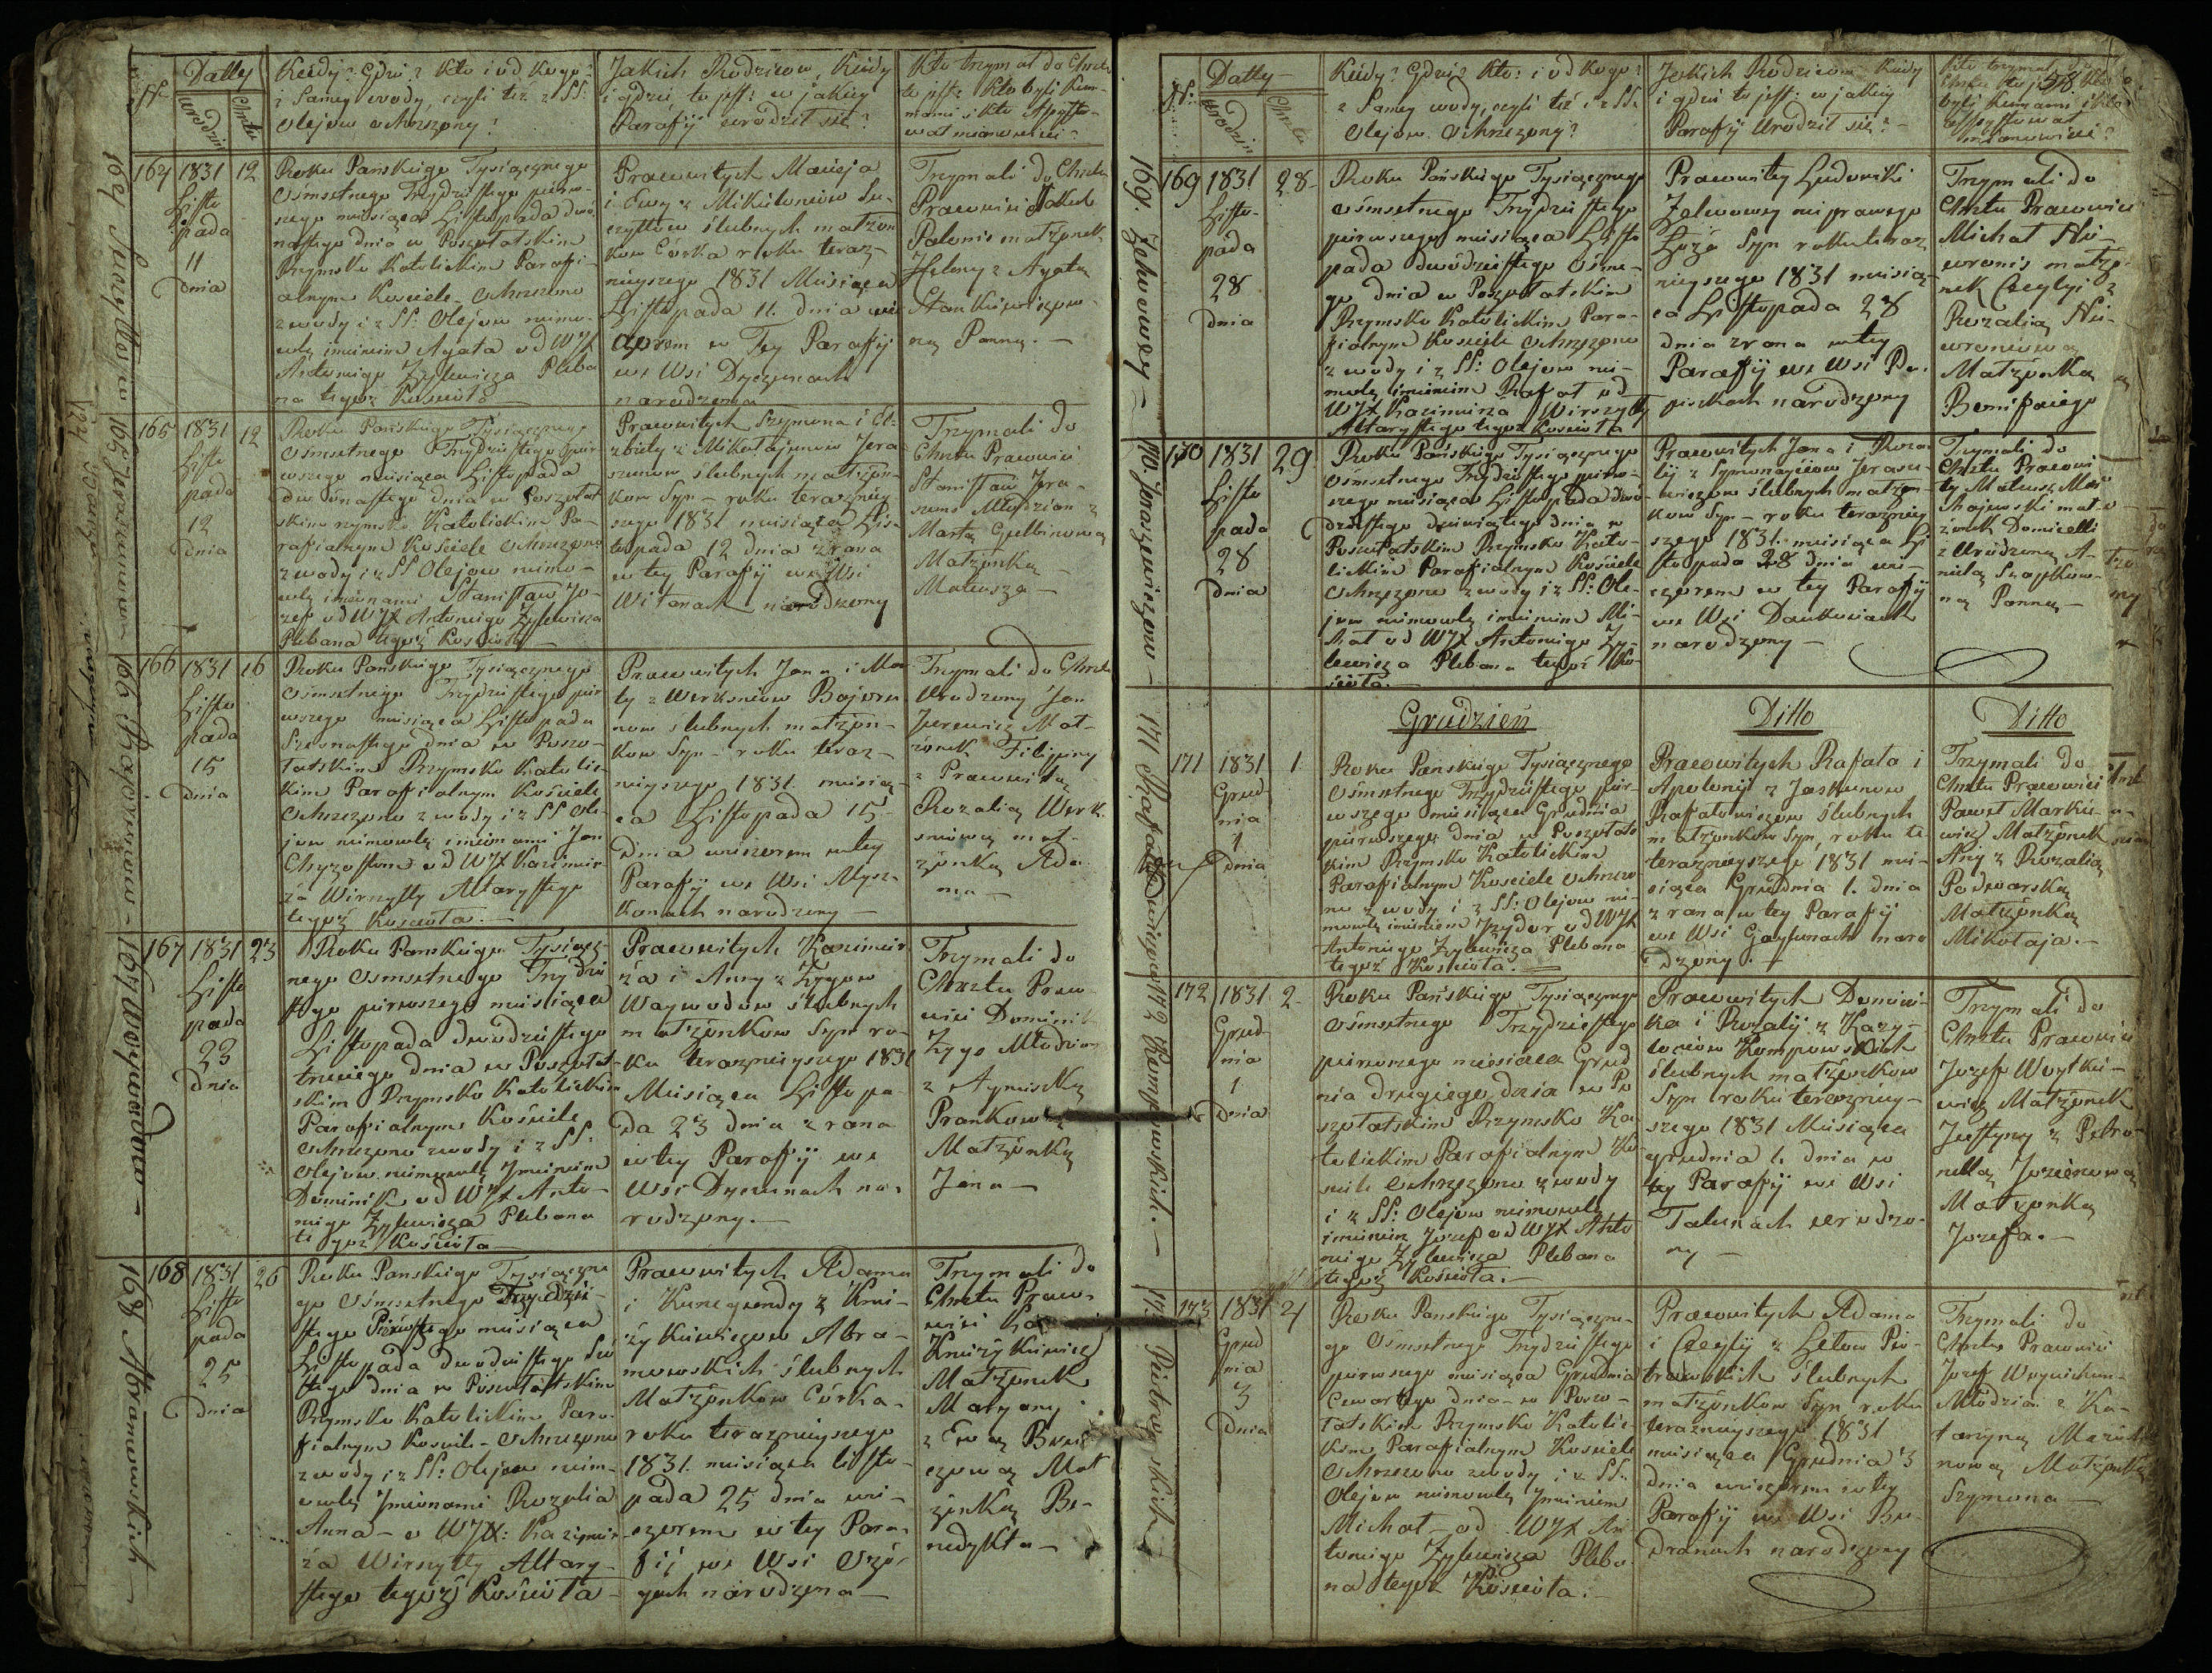 Datty
Kiedy? Gdzie? Kto i od kogo?
z Samey wody, czyli też z SS:
Olejow ochrzczony?
Jakich Rodzicow, Kiedy
i gdzie, to jest: w jakiey
Parafij urodził się?
Kto trzymał do Chrztu
to jest: Kto byli Kum-
mami i Kto Assysto-
wał mianowicie?
Urodzin
Chrztu
164
1831
Listo
pada
11
dnia
12
Roku Pańskiego Tysiącznego
Ośmsetnego Trzydziestego pierw-
szego miesiąca Listopada dwu-
nastego dnia w Poszołatskim
Rzymsko Katolickim Parafi-
alnym Kościele Ochrzczono
z wody i z SS: Olejow niemo-
wlę imieniem Agata od WJX
Antoniego Żylewicza Pleba
na tegoż Kościoła
Prawowitych Macieja
i Ewy z Mikulonisow Su-
czyttow ślubnych małżon
kow Córka roku teraz-
nieyszego 1831 Miesiąca
Listopada 11. dnia wie
czorem w Tey Parafij
we Wsi Dyczunach
narodzona
Trzymali do Chrztu
Prawowici Jakub
Palonis małżonek
Heleny z Agatą
Stankiewiczow-
ną Panną.—
165
1831
Listo
pada
12
dnia
12
Roku Pańskiego Tysiącznego
Ośmsetnego Trzydziestego pier
wszego miesiąca Listopada
dwónastego dnia w Poszołat
skim rzymsko Katolickim Pa-
rafialnym Kościele Ochrzczono
z wody i z SS Olejow niemo-
wlę imionami Stanisław Jo-
zef od WJX Antoniego Żylewicza
Plebana tegoż Kościoła
Prawowitych Szymona i El-
zbiety z Mikołajunow Jera
szunow ślubnych małżon-
kow Syn – roku terazniey-
szego 1831 miesiąca Lis-
topada 12 dnia zrana
w tey Parafij we Wsi
Witanach narodzony
Trzymali do
Chrztu Prawowici
Stanisław Jera-
szuns Młodzian z
Martą Gulbinową
Małżonką
Mateusza —
166
1831
Listo
pada
15
dnia
16
Roku Pańskiego Tysiącznego
Ośmsetnego Trzydziestego pier
wszego miesiąca Listopada
Szesnastego dnia w Poszo-
łatskim Rzymsko Katolic-
kim Parafialnym Kościele
Ochrzczono z wody i z SS Ole-
jow niemowle imionami Jan
Chryzostom od WJX Kazimie-
rza Wirszyłły Altarystego
tegoż Kościoła.—
Prawowitych Jana i Mar
ty z Werksniow Bojoru
now ślubnych małżon-
kow Syn – roku teraz-
nieyszego 1831. miesią-
ca Listopada 15
Dnia wieczorem w tey
Parafij we Wsi Mysz-
kanach narodzony —
Trzymali do Chrztu
Urodzony Jan
Jurewicz Mał-
żonek Filipiny
z Prawowitą
Rozalią Werk-
sniową mał-
żonką Ada-
ma —
167
1831
Listo
pada
23
Dnia
23
Roku Pańskiego Tysiącz-
nego Ośmsetnego Trzydzie
stego pierwszego miesiąca
Listopada dwódziestego
trzeciego dnia w Poszołat-
skim Rzymsko Katolickim
Parafialnym Kościele
Ochrzczono z wody i z SS:
Olejow niemowlę Imieniem
Dominik od WJX Anto-
niego Żylewicza Plebana
tegoż Kościoła —
Prawowitych Kazimier
za i Anny z Zygow
Waywodow ślubnych
małżonkow Syn ro-
ku teraznieyszego 1831
Miesiąca Listopa-
da 23 dnia zrana
w tey Parafij we
Wsi Dyczunach na-
rodzony.—
Trzymali do
Chrztu Prawo-
wici Dominik
Zygo Młodzian
z Agnieszką
Prankow
Małżonką
Jana —
168
1831
Listo
pada
25
dnia
26
Roku Pańskiego Tysiączne
go Ośmsetnego Trzydzie-
stego Pierwszego miesiąca
Listopada dwódziestego Szo
stego dnia w Poszołatskim
Rzymsko Katolickim Para-
fialnym Kosciele Ochrzczono
z wody i z SS: Olejow niem-
owlę Imionami Rozalia
Anna – o WJX: Kazimir-
za Wirszyłły Altary-
stego tegoż Kościoła —
Prawowitych Adama
i Kunegundy z Kni-
żykiewiczow Abra-
mowskich ślubnych
Małżonkow Córka–
roku teraznieyszego
1831. miesiąca listo-
pada 25 dnia wie-
czorem w tey Para-
fij we Wsi Ożó-
gach narodzona —
Trzymali do
Chrztu Prawo-
wici
Kniżykiewicz
Małżonek
Maryany
z Ewą
czową Mał
żonką Be-
nedykta —
164 Suczyttow 165 Jeraszunow 166 Bojorunow – 167 Woywodow – 168 Abramowskich —
Datty
Kiedy? Gdzie? Kto: i od Kogo?
z Samey wody, czyli też z SS.
Olejow Ochrzczony?
Jakich Rodzicow Kiedy
i gdzie to jest: w jakiey
Parafij Urodził się?
Kto trzymał do
58
byli Kumami i Kto
assystował
mianowicie?
Urodzin
Chrztu
169
1831
Listo-
pada
28
dnia
28
Roku Pańskiego Tysiącznego
ośmsetnego Trzydziestego
pierwszego miesiąca Listo
pada dwódziestego ósme-
go dnia w Poszołatskim
Rzymsko Katolickim Para-
fialnym Kościele Ochrzczono
z wody i z SS: Olejow nie-
mowlę imieniem Rafał od
WJX Kazimierza Wirszyłły
Altarystego tegoż Kosciola
Prawowitey Ludowiki
Zelwowey nieprawego
Łoża Syn roku teraz
nieyszego 1831 miesią-
ca Listopada 28
dnia zrana w tey
Parafij we Wsi Po-
piszkach narodzony
Trzymali do
Chrztu Prawowici
Michał Nie-
wronis małżo-
nek Cecylyi z
Rozalią Nie-
wroniową
Małżonką
Bonifacego
170
1831
Listo
pada
28
dnia
29
Roku Pańskiego Tysiącznego
Ośmsetnego Trzydziestego pierw-
szego miesiąca Listopada dwó-
dziestego dziewiątego dnia w
Poszołatskim Rzymsko Kato-
lickim Parafialnym Kościele
Ochrzczono z wody i z SS: Ole-
jow niemowlę imieniem Mi-
chał od WJX Antoniego Ży-
lewicza Plebana tegoż Ko-
ścioła.—
Prawowitych Jana i Roza-
lij z Jerasze-
wiczow ślubnych małżon-
kow Syn – roku terazniey
szego 1831. miesiąca Li
stopada 28 dnia wie-
czorem w tey Parafij
we Wsi Daukszach
narodzony —
Trzymali do
Chrztu Prawowi
ty Mateusz
małżonek Domicelli
z Urodzoną A-
nielą
ną Panną —
Grudzień
Ditto
Ditto
171
1831
Grud-
nia
1
dnia
1
Roku Pańskiego Tysiącznego
Ośmsetnego Trzydziestego pier-
wszego miesiąca Grudnia
pierwszego dnia w Poszołats
kim Rzymsko Katolickim
Parafialnym Kościele Ochrzczo
no z wody i z SS: Olejow nie-
mowlę imieniem Jzydor od WJX
Antoniego Żylewicza Plebana
tegoż Kościoła.—
Prawowitych Rafała i
Apolonij z Jaskunow
Rafałowiczow ślubnych
małżonkow Syn, roku te
teraznieyszego 1831 mie-
siąca Grudnia 1. dnia
zrana w tey Parafij
we Wsi Gaylunach naro
dzony.—
Trzymali do
Chrztu Prawowici
Paweł Markie-
wicz Małżonek
Any z Rozalią
Podworską
Małżonką
Mikołaja.—
172
1831
Grud-
nia
1
dnia
2
Roku Pańskiego Tysiącznego
Ośmsetnego Trzydziestego
pierwszego miesiąca Grud
nia drugiego dnia w Po
szołatskim Rzymsko Ka
tolickim Parafialnym Ko
sciele Ochrzczono z wody
i z SS: Olejow niemowlę
imieniem Jozef od WJX Anto
niego Żylewicza Plebana
tegoż Kościoła.—
Prawowitych Domini-
ka i Rozalij z Kazy-
lociow Kompowskich
ślubnych małżonkow
Syn roku terazniey-
szego 1831 Miesiąca
grudnia 1. dnia w
tey Parafij we Wsi
Talunach urodzo-
ny —
Trzymali do
Chrztu Prawowici
Jozef Woytkie-
wicz Małżonek
Justyny z Petro-
nellą
Małżonką
Jozefa.—
173
1831
Grud
nia
3
Dnia
4
Roku Pańskiego Tysiączne-
go Ośmsetnego Trzydziestego
pierwszego miesiąca Grudnia
Czwartego dnia – w Poszo-
łatskim Rzymsko Katolic-
kim Parafialnym Kościele
Ochrzczono z wody i z SS.
Olejow niemowlę Imieniem
Michał – od WJX An
toniego Żylewicza Pleba
na tegoż Kościoła.
Prawowitych Adama
i Cecylij z Letow Pie-
trowskich ślubnych
małżonkow Syn, roku
teraznieyszego 1831
miesiąca Grudnia 3
dnia wieczorem w tey
Parafij we Wsi Bu-
dranach narodzony
Trzymali do
Chrztu Prawowici
Jozef
Młodzian z Ka-
tarzyną
nową Małżonką
Szymona —
169. Zelwowey — 170. Jeraszewiczow — 171 172 Kompowskich. — 173 Pietrowskich